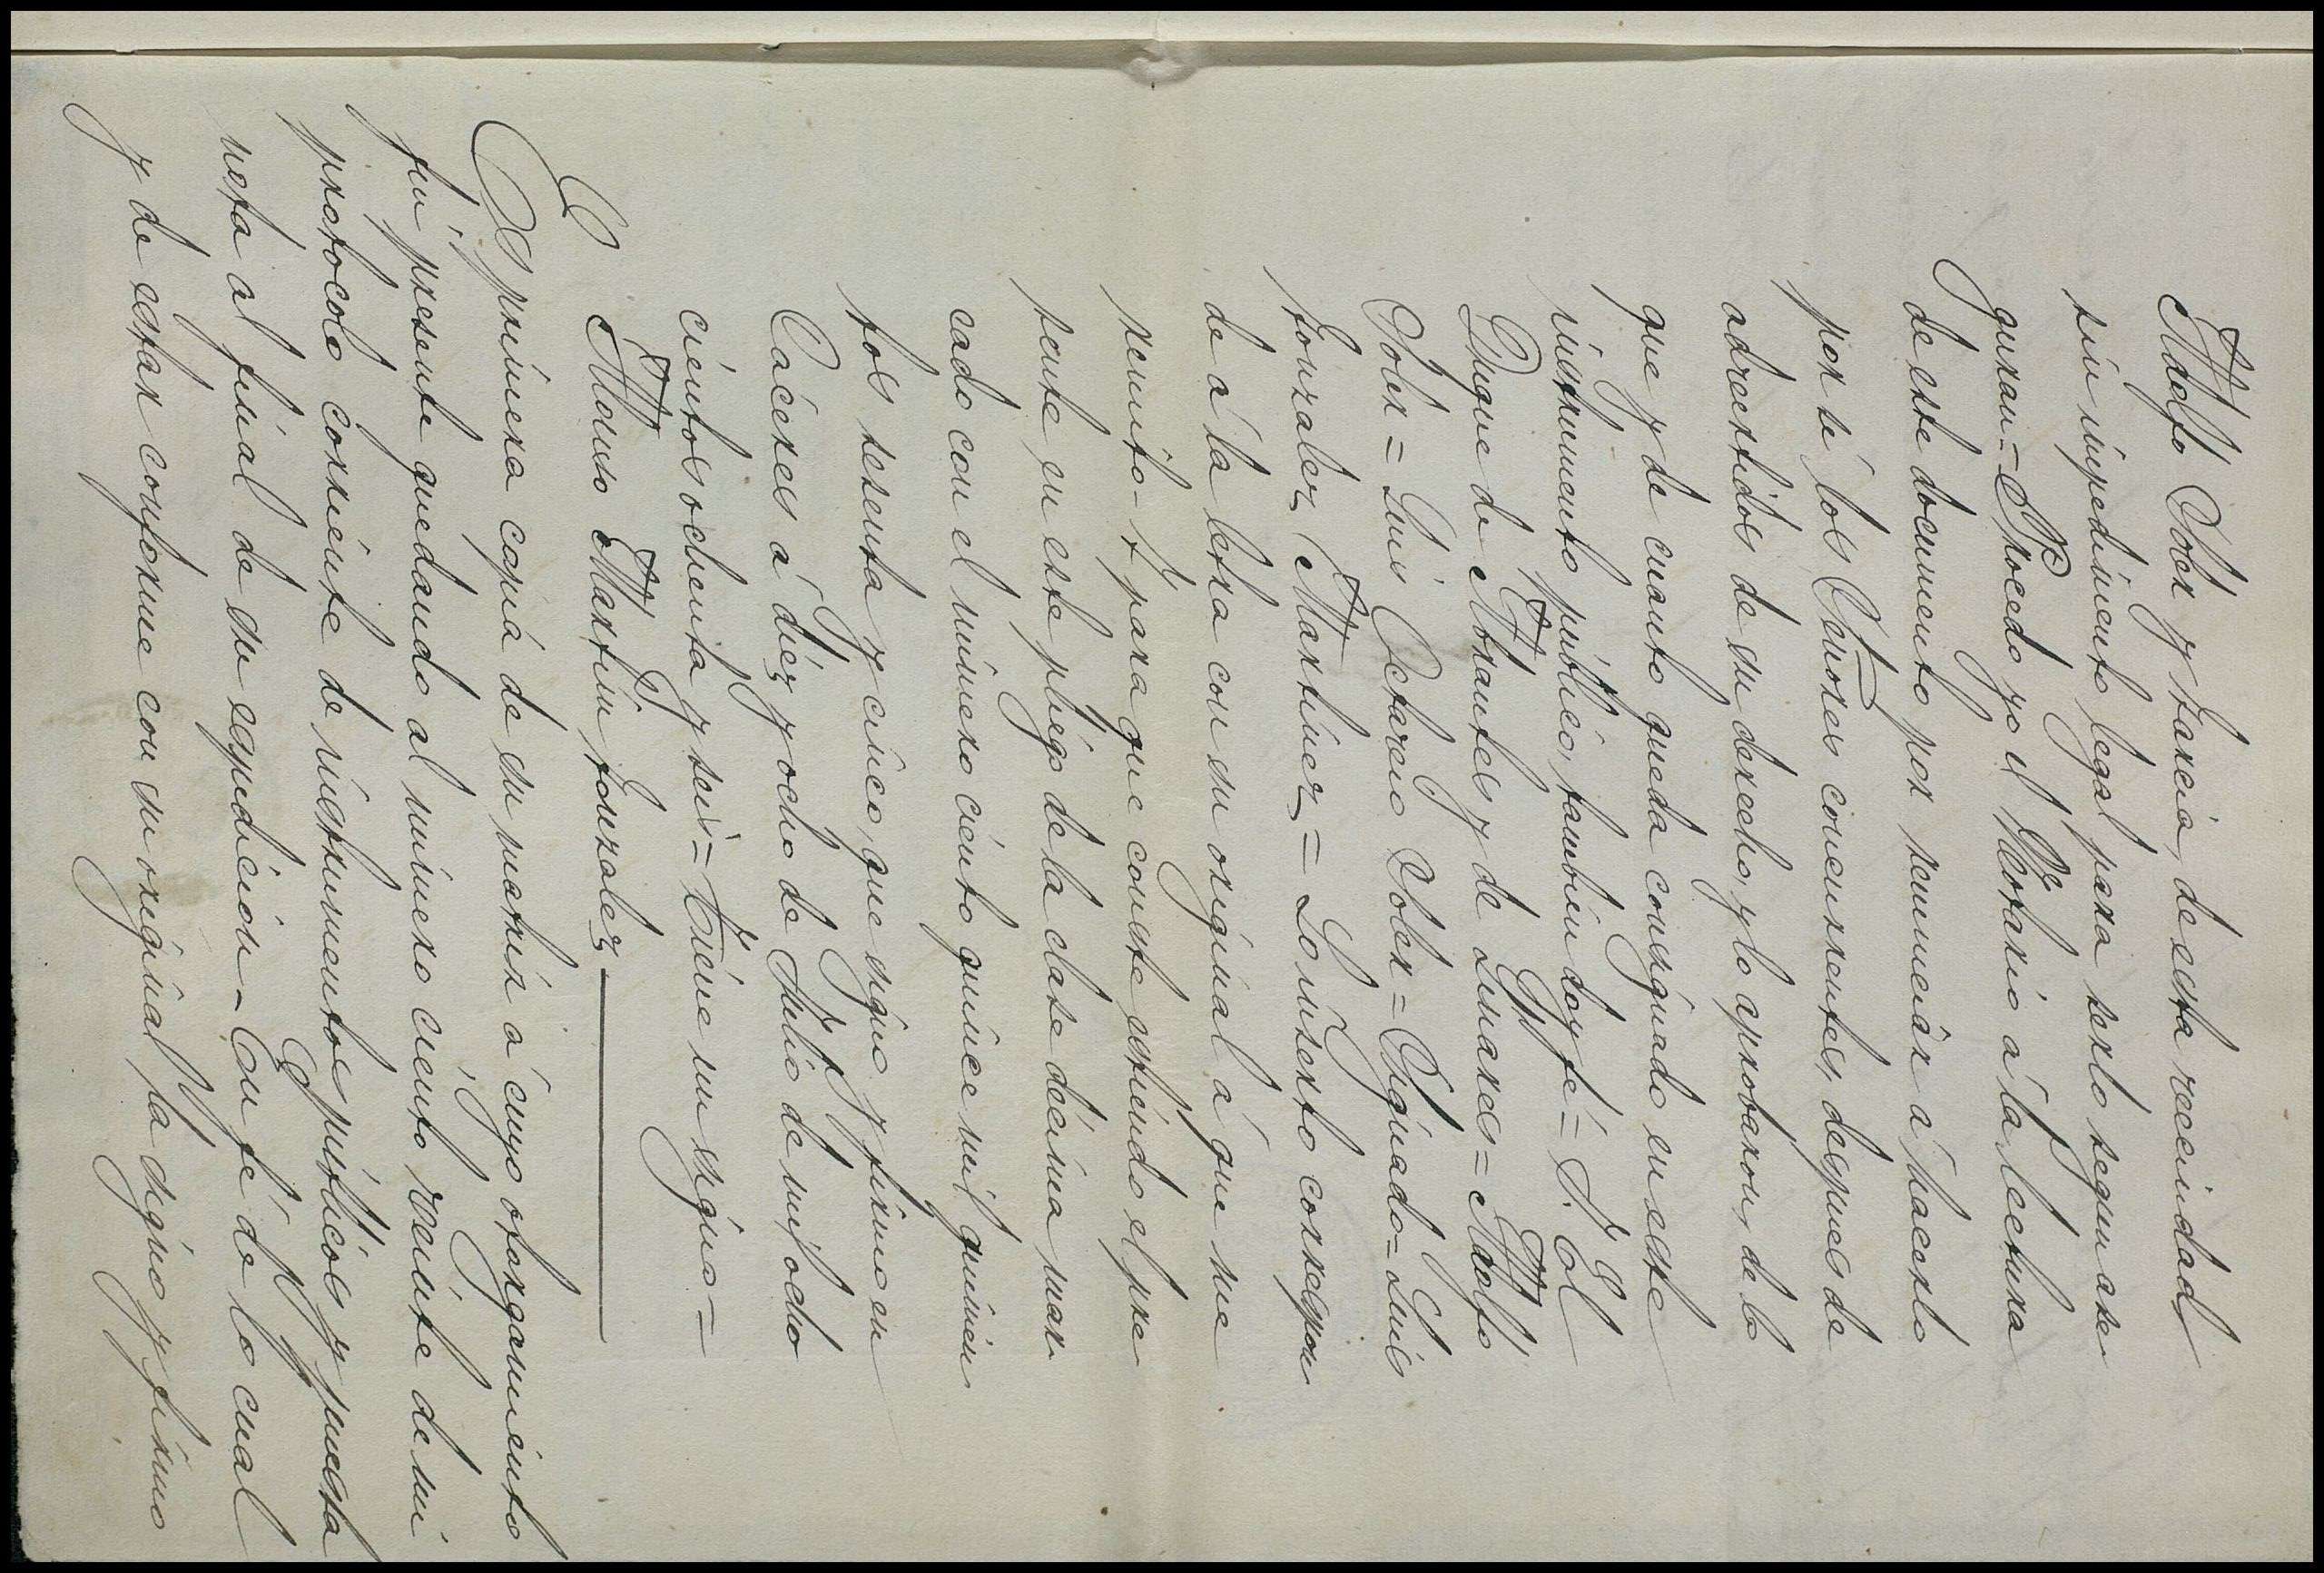 Adolfo Soler y García, de esta vecindad
sin impedimento legal para serlo segun ase
guran = Procedo yo el Notario á la lectura
de este documento por renunciar á hacerlo
por sí los Señores concurrentes, despues de
advertidos de su derecho, y lo aprobaron, de lo
que y de cuanto queda consignado en este
instrumento público, tambien doy fé = P. El
Duque de Abrantes y de Linares = Adolfo
Soler = Luis Octavio Soler = Signado = Luis
Gonzalez Martinez = Lo inserto correspon
de á la letra con su original á que me
remito - Y para que conste estiendo el pre
sente en este pliego de la clase décima mar
cado con el número ciento quince mil quinien
tos sesenta y cinco, que signo y firmo en
Cáceres á diéz y ocho de Julio de mil ocho
cientos ochenta y seis = Tiene un signo =
Manso Martin Gonzalez
Es primera copia de su matriz á cuyo otorgamiento
fuí presente quedando al número ciento veinte de mi
protocolo corriente de instrumentos públicos y puesta
nota al final de su espedición - En fé de lo cual
y de estar conforme con su original, la signo y firmo